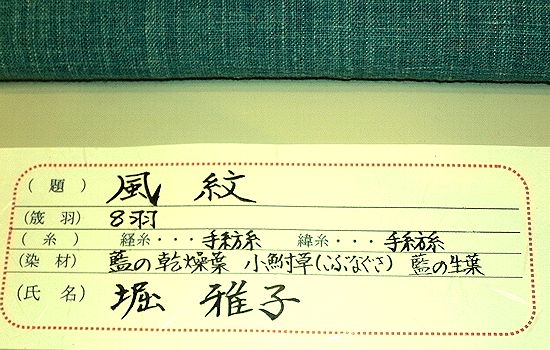 (題) 風紋
(筬羽) 8羽
(糸) 経糸・・・手紡糸 緯糸・・・手紡糸
(染材) 藍の乾燥葉 小鮒草(こぶなぐさ) 藍の生葉
(氏名) 堀 雅子